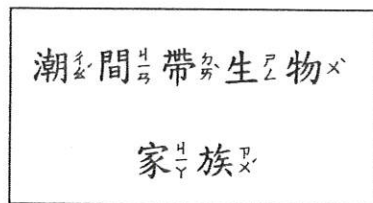 潮ㄔㄠˊ間ㄐㄧㄢ帶ㄉㄞˋ生ㄕㄥ物ㄨˋ
家ㄐㄧㄚ族ㄗㄨˊ